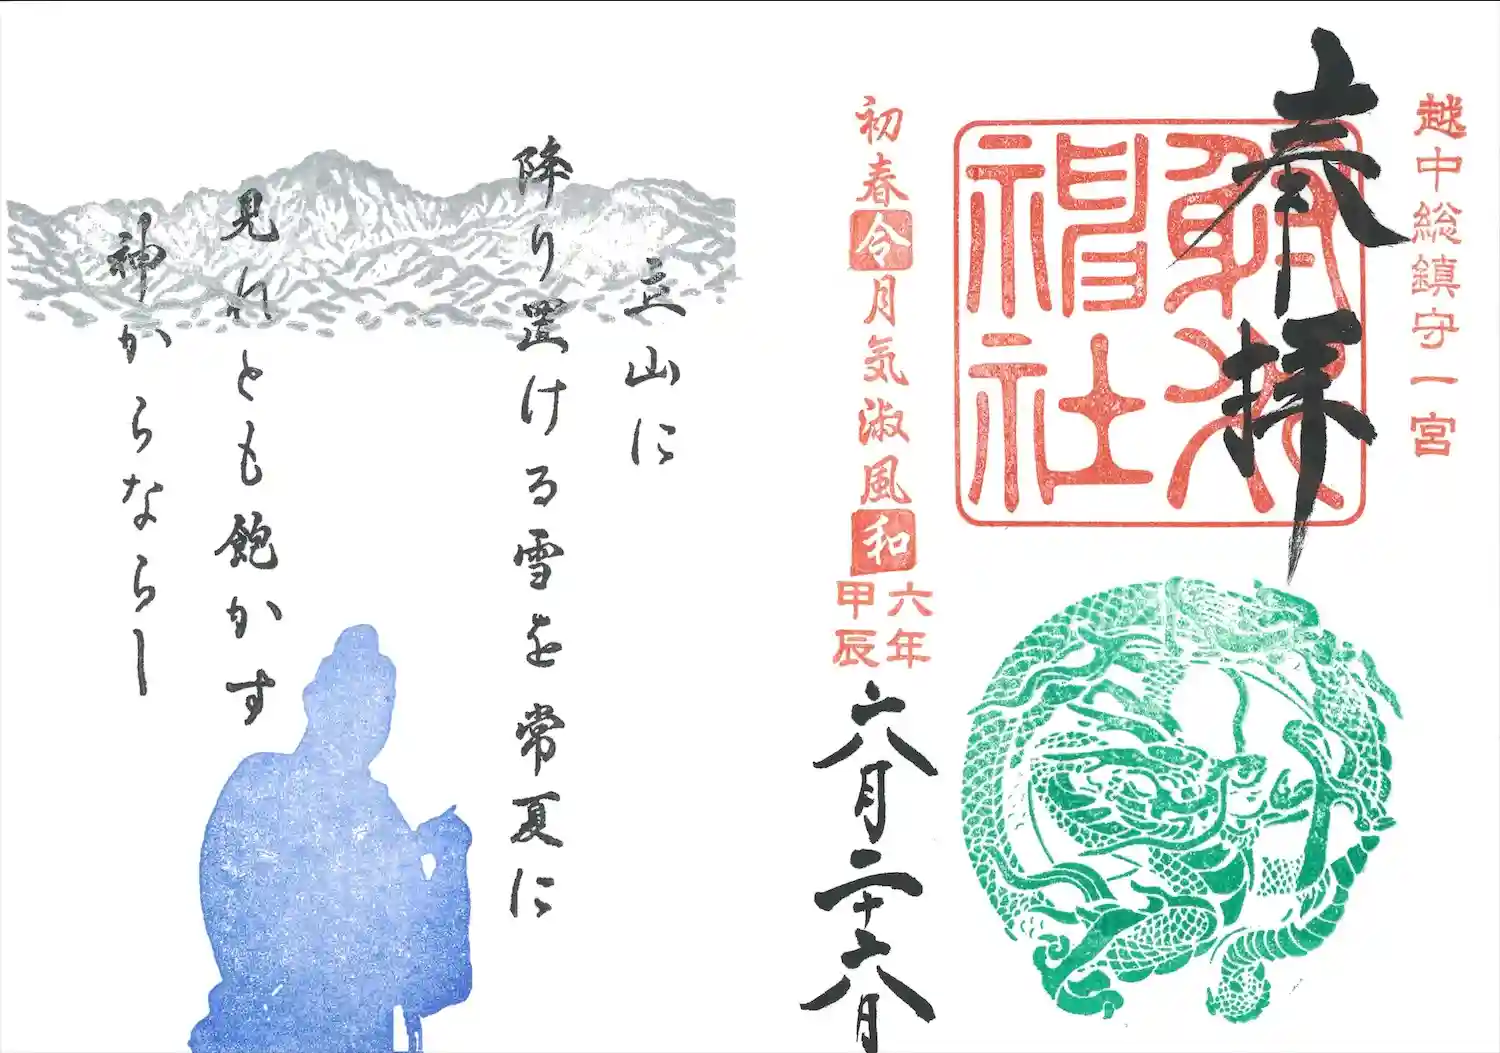 越中総鎮守一宮
奉拝
射水
神社
初春令月気淑風和
六年
甲辰
六月二十六日
立山に
降り置ける雪を常夏に
見れとも飽かす
神からならし